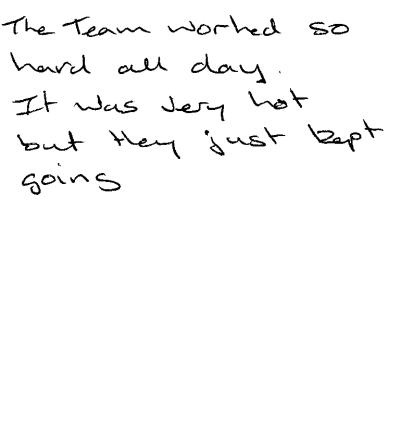 The Team worked so
hard all day.
It was very hot
but they just kept
going